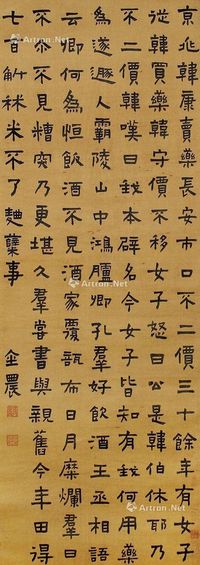 京兆韓康賣藥長安市口不二價三十餘年有女子
從韓買藥韓守價不移女子怒曰公是韓伯休耶乃
不二價韓嘆曰我本辟名今女子皆知有我何用藥
為遂遯入霸陵山中鴻臚卿孔羣好飲酒王丞相語
云卿何為恒飲酒不見酒家覆瓿布日月糜爛羣曰
不尒不見糟宍乃更堪久羣嘗書與親舊今年田得
七百斛秫米不了麴糵事
金農
Artron.Net
Artron.Net
Artron.Net